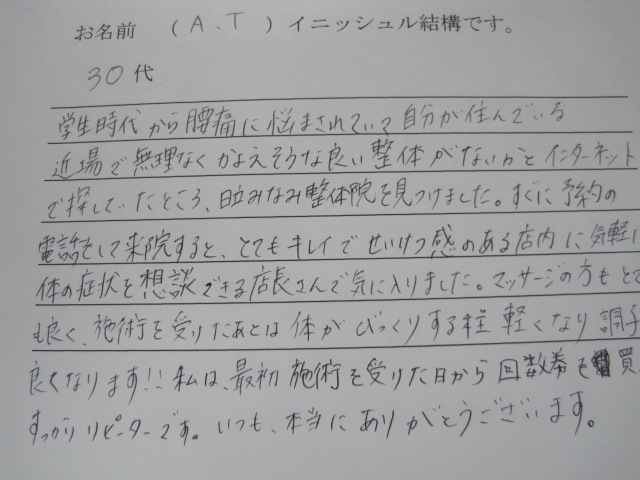 お名前 （ A.T ）イニッシュル結構です。
30代
学生時代から腰痛に悩まされていて自分が住んでいる
近場で無理なくかよえそうな良い整体がないかとインターネット
で探していたところ、日立みなみ整体院を見つけました。すぐに予約の
電話をして来院すると、とてもキレイでせいけつ感のある店内に気軽に
体の症状を想談できる店長さんで気に入りました。マッサージの方もとて
も良く、施術を受りたあとは体がびっくりする程軽くなり調子
良くなります!!私は、最初施術を受りた日から回数券を買
すっかりリピーターです。いつも、本当にありがとうございます。